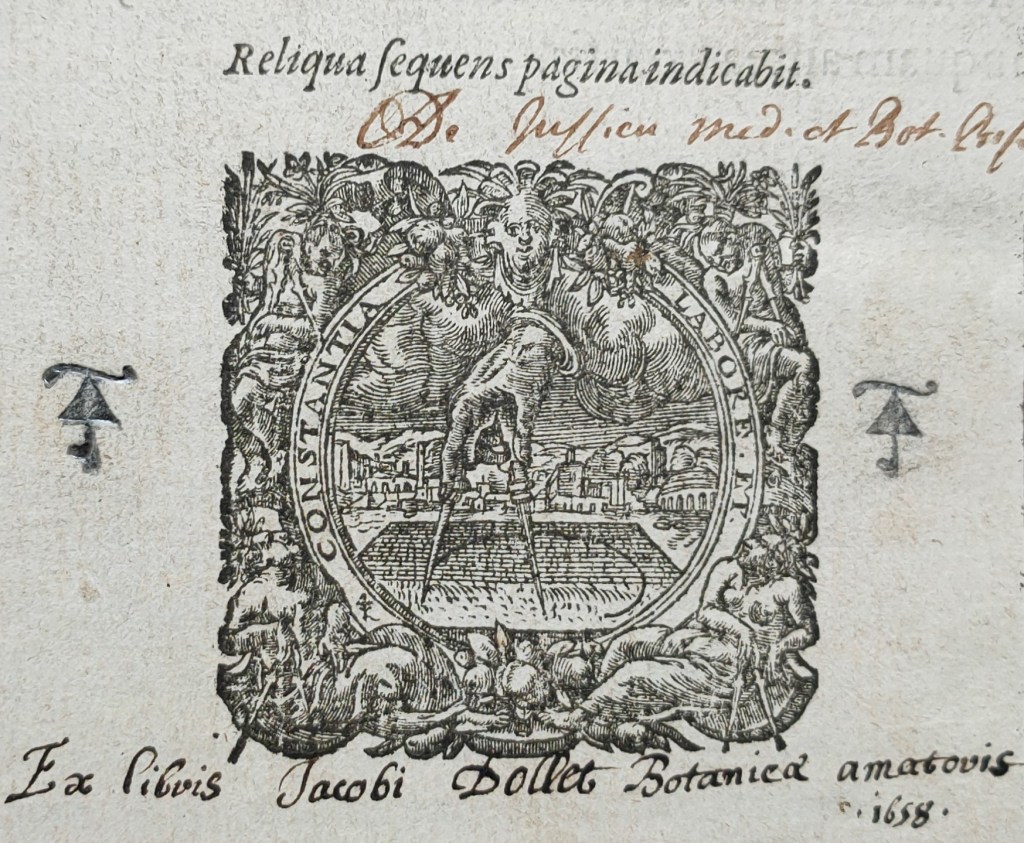 Reliqua ſequens pagina indicabit.
De Juſſieu med. et Bot. Prof
CONSTANTIA LABORE ET
Ex libris Jacobi Dollet Botanicæ amatoris
.1658.